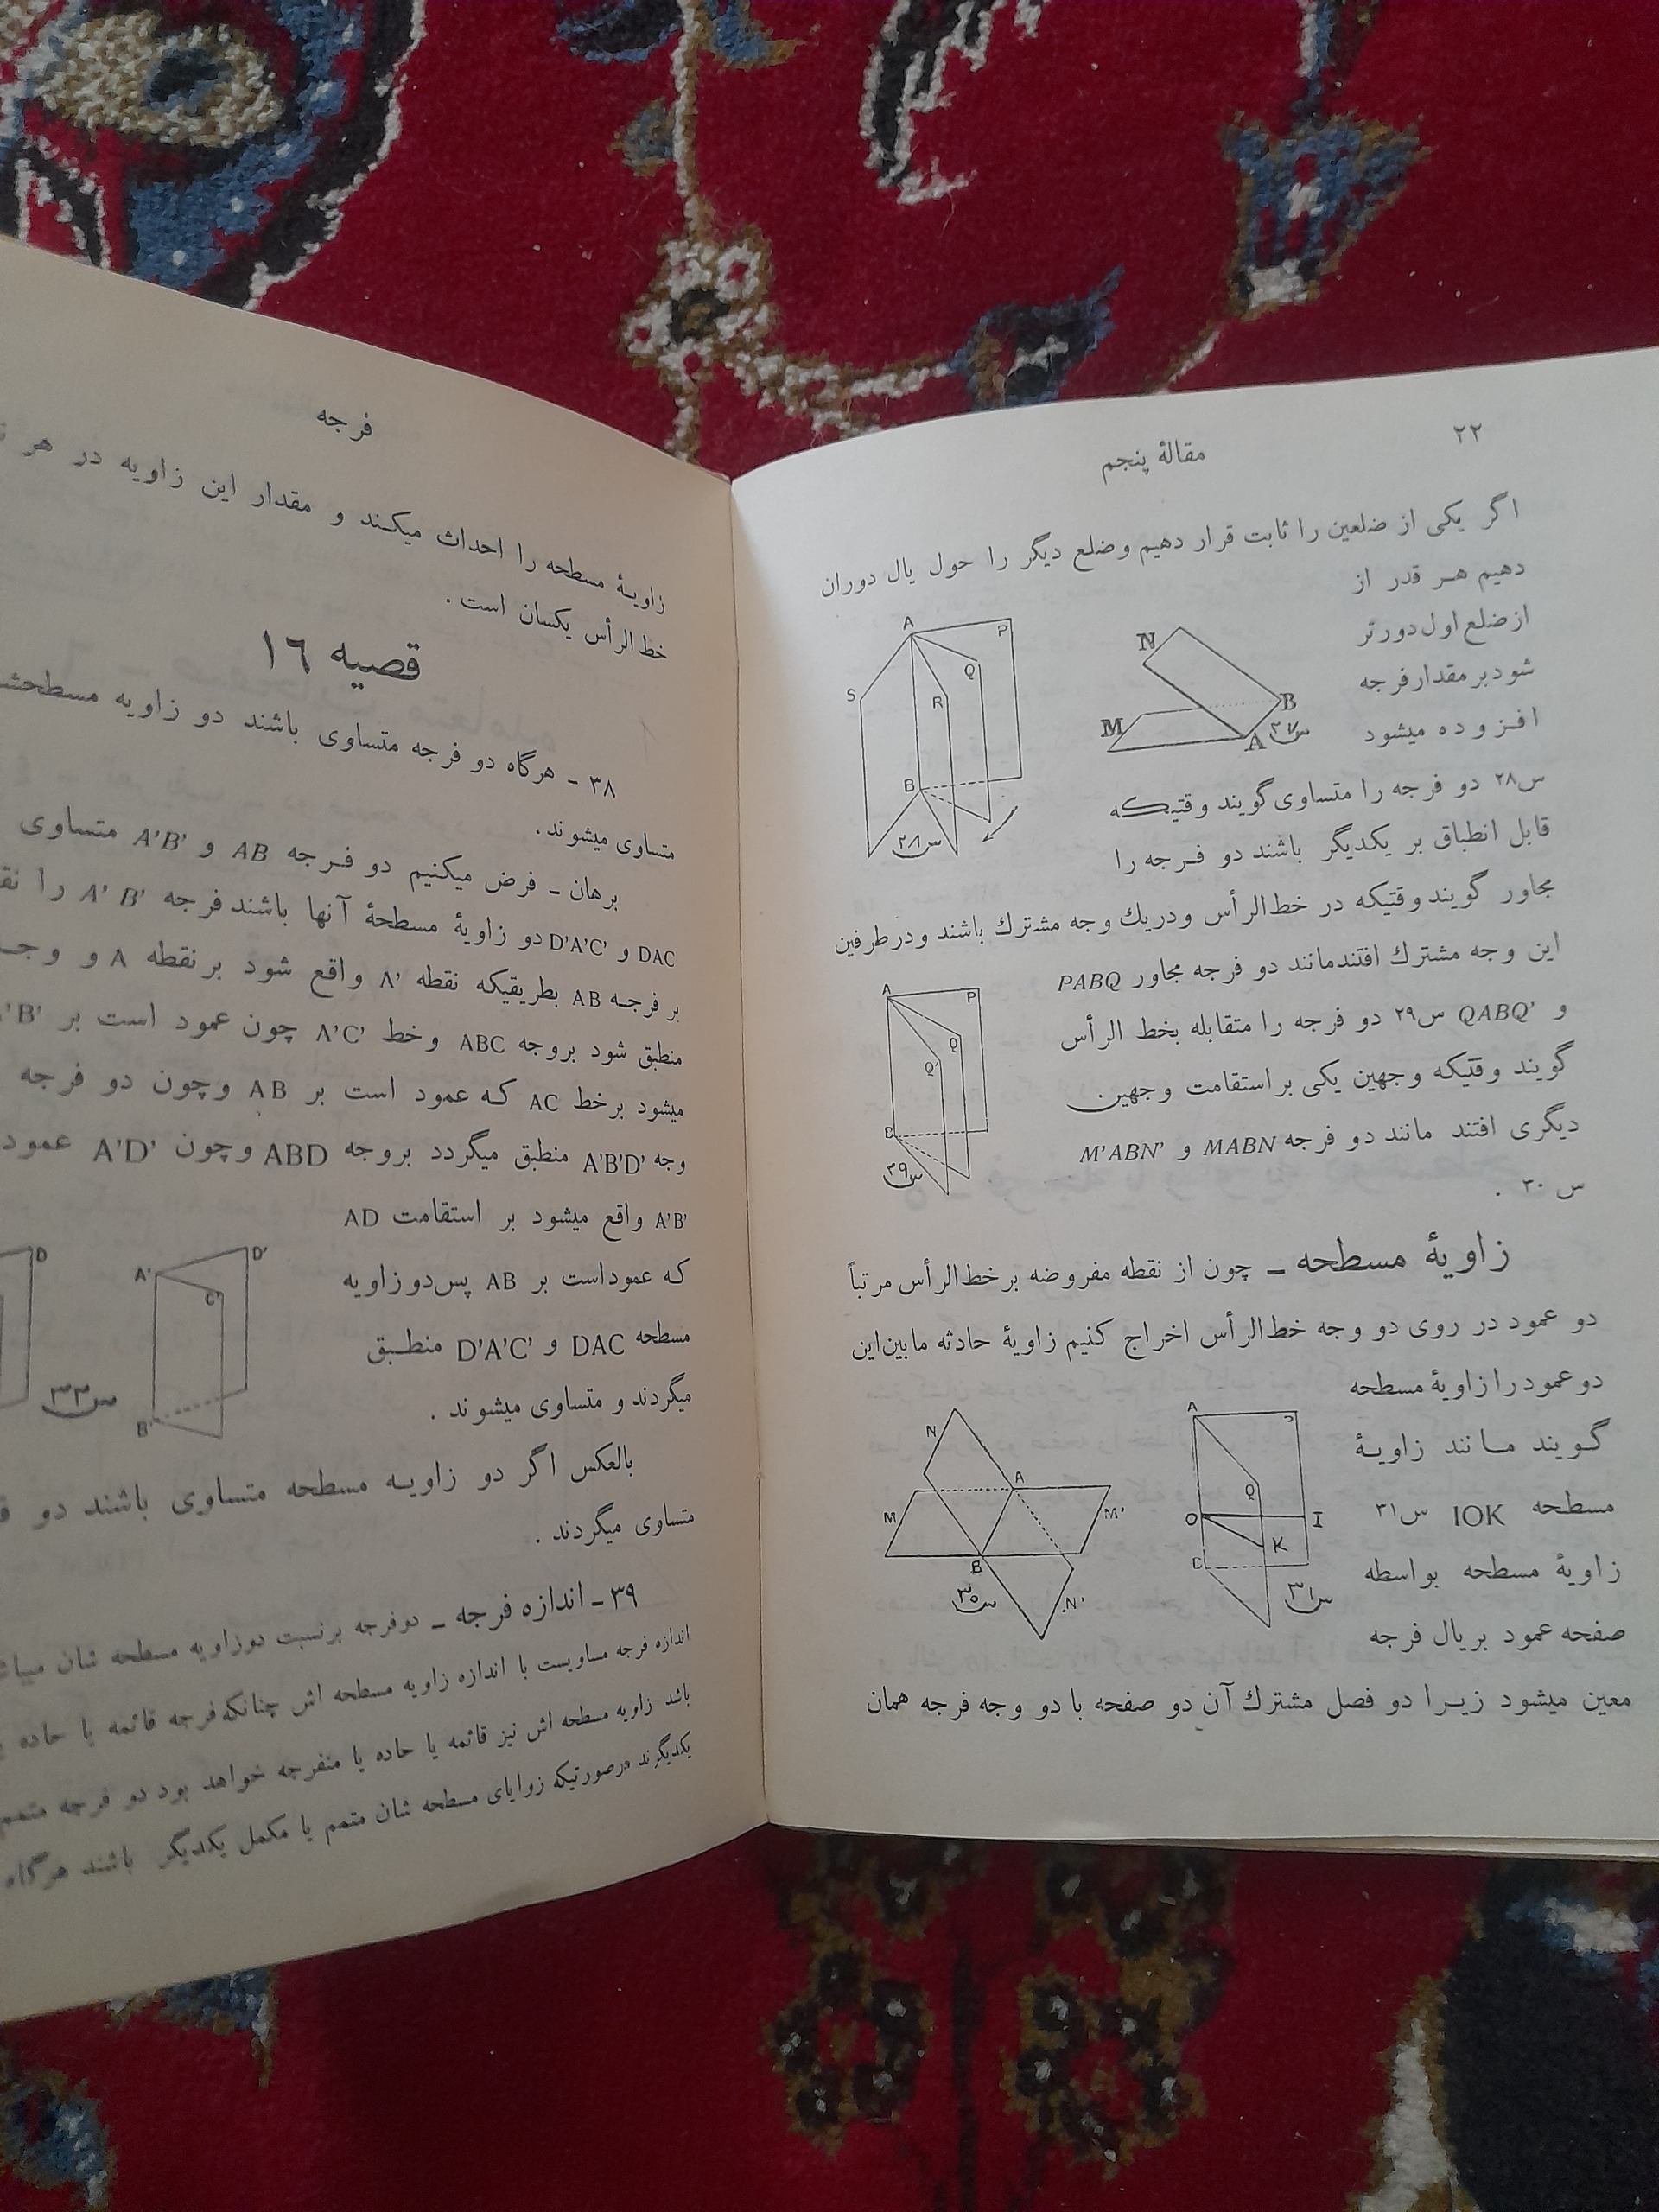 ۲۲
مقالهٔ پنجم
اگر یکی از ضلعین را ثابت قرار دهیم وضلع دیگر را حول یال دوران
دهیم هر قدر از
از ضلع اول دورتر
شود بر مقدار فرجه
افزوده میشود
س۲۸ دو فرجه را متساوی گویند وقتیکه
قابل انطباق بر یکدیگر باشند دو فرجه را
مجاور گویند وقتیکه در خط‌الرأس ودریك وجه مشترك باشند ودرطرفین
این وجه مشترك افتندمانند دو فرجه مجاور PABQ
و QABQ' س۲۹ دو فرجه را متقابله بخط الرأس
گویند وقتیکه وجهین یکی بر استقامت وجهین
دیگری افتند مانند دو فرجه MABN و M'ABN'
س ۳۰ .
A P Q S R B س۲۸
N B M A س۲۷
A P Q Q' B س۲۹
زاویهٔ مسطحه ـ چون از نقطه مفروضه بر خط‌الرأس مرتباً
دو عمود در روی دو وجه خط‌الرأس اخراج کنیم زاویهٔ حادثه مابین‌این
دو عمود را زاویهٔ مسطحه
گویند مانند زاویهٔ
مسطحه IOK س۳۱
زاویهٔ مسطحه بواسطه
صفحه عمود بریال فرجه
معین میشود زیرا دو فصل مشترك آن دو صفحه با دو وجه فرجه همان
N A M M' B N' س۳۰
A Q O I K س۳۱
فرجه
زاویهٔ مسطحه را احداث میکند و مقدار این زاویه در هر
خط الرأس یکسان است .
قصیه ۱٦
۳۸ ـ هرگاه دو فرجه متساوی باشند دو زاویه
متساوی میشوند .
برهان ـ فرض میکنیم دو فرجه AB و A'B' متساوی
DAC و D'A'C' دو زاویهٔ مسطحهٔ آنها باشند فرجه A'B' را
بر فرجه AB بطریقیکه نقطه A' واقع شود بر نقطه A و
منطبق شود بروجه ABC وخط A'C' چون عمود است بر
میشود برخط AC که عمود است بر AB وچون دو فرجه
وجه A'B'D' منطبق میگردد بروجه ABD وچون A'D' عمود
A'B' واقع میشود بر استقامت AD
که عمود است بر AB پس دو زاویه
مسطحه DAC و D'A'C' منطبق
میگردند و متساوی میشوند .
D A' D' C' B' س۳۳
بالعکس اگر دو زاویه مسطحه متساوی باشند دو
متساوی میگردند .
۳۹ ـ اندازه فرجه ـ دوفرجه برنسبت دوزاویه مسطحه شان
اندازه فرجه مساویست با اندازه زاویه مسطحه اش چنانکه فرجه قائمه یا حاده
باشد زاویه مسطحه اش نیز قائمه یا حاده یا منفرجه خواهد بود دو فرجه متمم
یکدیگرند درصورتیکه زوایای مسطحه شان متمم یا مکمل یکدیگر باشند هرگاه